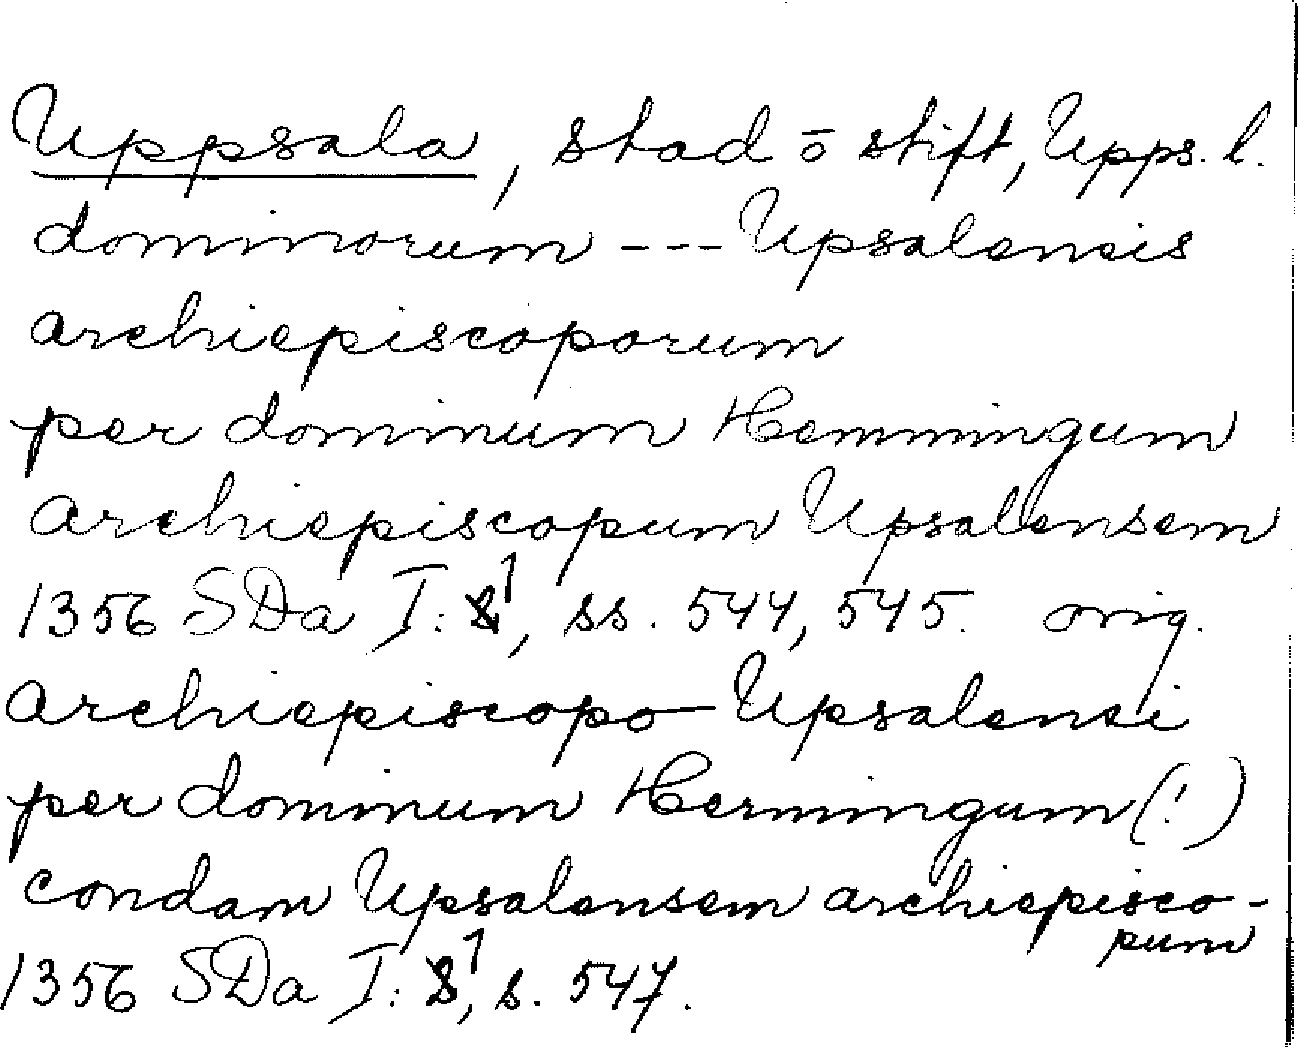 Uppsala, stad ō stift, Upps. l.
dominorum --- Upsalensis
archiepiscoporum
per dominum Hemmingum
archiepiscopum Upsalensem
1356 SDa I: 1, ss. 544, 545. orig.
archiepiscopo Upsalensi
per dominum Hermingum (!)
condam Upsalensem archiepisco-
pum
1356 SDa I: 1, s. 547.